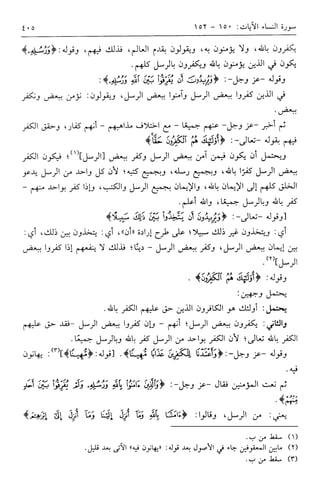 سورة النساء الآيات: ١٥٠ - ١٥٢ ٤٠٥
يكفرون بالله، ولا يؤمنون به، ويقولون بقدم العالم، فذلك فيهم، وقوله: ﴿وَرُسُلِهِ،﴾
يكون في الذين يؤمنون بالله ويكفرون بالرسل كلهم.
وقوله -عز وجل-: ﴿وَيُرِيدُونَ أَن يُفَرِّقُوا بَيْنَ اللَّهِ وَرُسُلِهِ،﴾:
في الذين كفروا ببعض الرسل وآمنوا ببعض الرسل، ويقولون: نؤمن ببعض ونكفر
ببعض.
ثم أخبر -عز وجل- عنهم جميعًا - مع اختلاف مذاهبهم - أنهم كفار، وحقق الكفر
فيهم بقوله -تعالى-: ﴿أُوْلَٰئِكَ هُمُ الْكَٰفِرُونَ حَقًّا﴾
ويحتمل أن يكون فيمن آمن ببعض الرسل وكفر ببعض [الرسل](١)؛ فيكون الكفر
ببعض الرسل كفرًا بالله، وبجميع رسله، وبجميع كتبه؛ لأن كل واحد من الرسل يدعو
الخلق كلهم إلى الإيمان بالله، والإيمان بجميع الرسل والكتب، وإذا كفر بواحد منهم -
كفر بالله وبالرسل جميعًا، والله أعلم.
[وقوله -تعالى-: ﴿وَيُرِيدُونَ أَن يَتَّخِذُوا بَيْنَ ذَٰلِكَ سَبِيلًا﴾
أي: ويتخذون غير ذلك سبيلا؛ على طرح إرادة «أن»، أي: يتخذون بين ذلك، أي:
بين إيمان ببعض الرسل، وكفر ببعض الرسل - دينًا؛ فذلك لا ينفعهم إذا كفروا ببعض
الرسل](٢).
وقوله: ﴿أُوْلَٰئِكَ هُمُ الْكَٰفِرُونَ﴾ .
يحتمل وجهين:
يحتمل: أولئك هو الكافرون الذين حق عليهم الكفر بالله.
والثاني: يكفرون ببعض الرسل؛ أنهم - وإن كفروا ببعض الرسل -فقد حق عليهم
الكفر بالله تعالى؛ لأن الكفر بواحد من الرسل كفر بالله وبالرسل جميعًا.
وقوله -عز وجل-: ﴿وَأَعْتَدْنَا لِلْكَٰفِرِينَ عَذَابًا مُّهِينًا﴾. [قوله: ﴿مُّهِينًا﴾](٣): يهانون
فيه.
ثم نعت المؤمنين فقال -عز وجل-: ﴿وَالَّذِينَ ءَامَنُوا بِاللَّهِ وَرُسُلِهِ، وَلَمْ يُفَرِّقُوا بَيْنَ أَحَدٍ
مِّنْهُمْ﴾.
يعني: من الرسل، وقالوا: ﴿ءَامَنَّا بِاللَّهِ وَمَا أُنزِلَ إِلَيْنَا وَمَا أُنزِلَ إِلَىٰ إِبْرَٰهِيمَ﴾
(١) سقط من ب.
(٢) مابين المعقوفين جاء في الأصول بعد قوله: «يهانون فيه» الآتى بعد قليل.
(٣) سقط من ب.